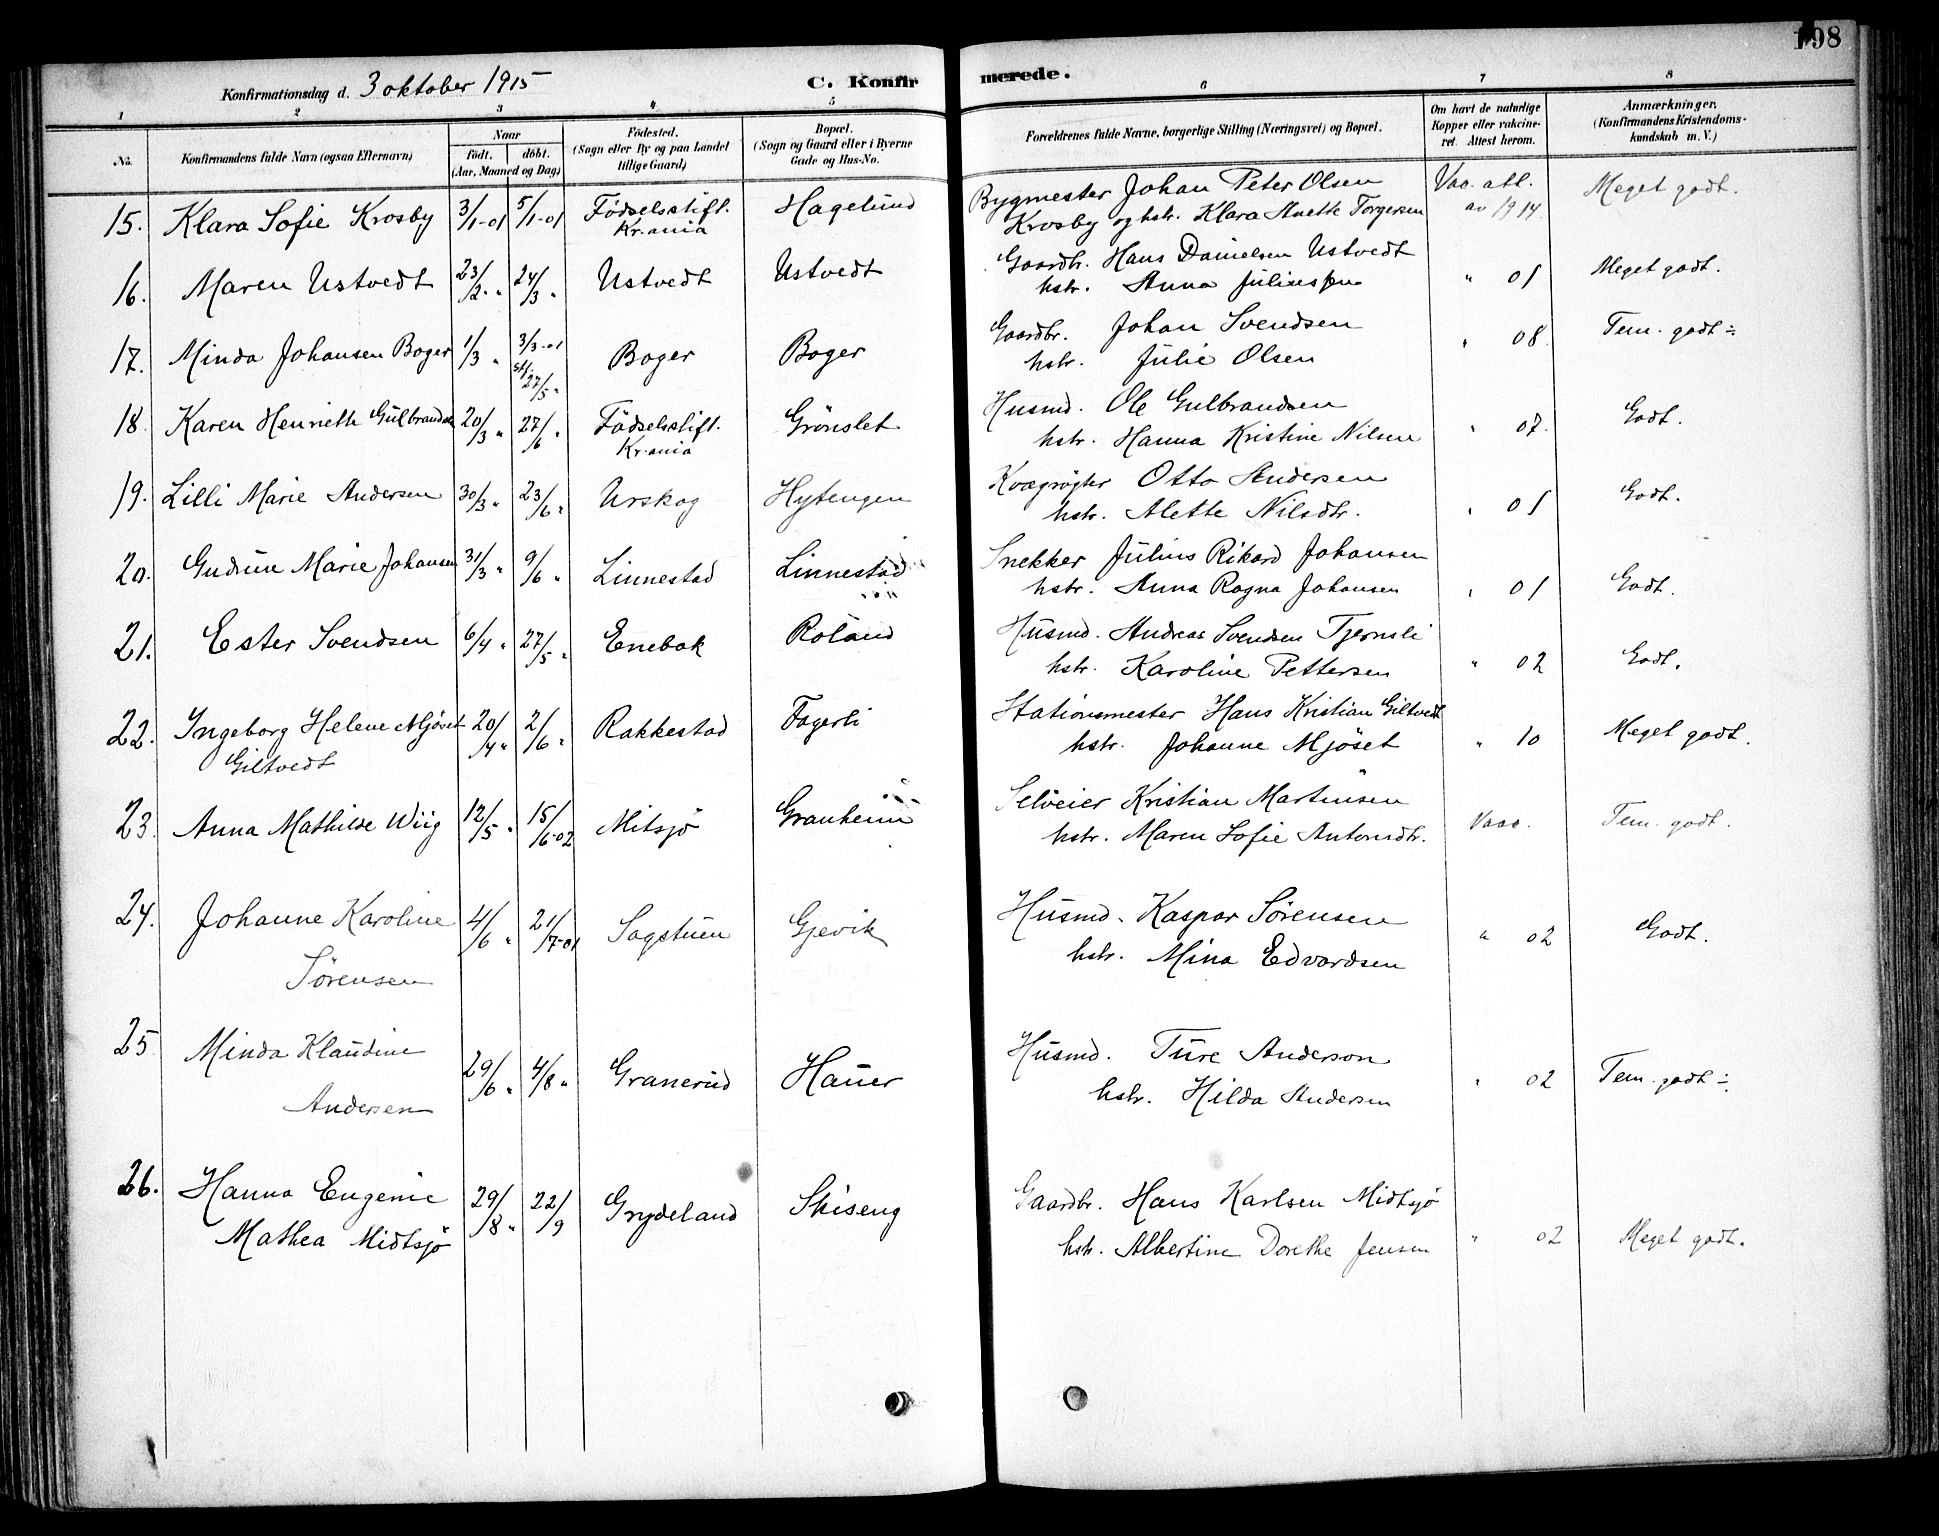 198
Konfirmationsdag d. 3 oktober 1915
C. Konfirmerede.
1 2 3 4 5 6 7 8
No.
Konfirmandens fulde Navn (ogsaa Efternavn)
Naar
født. døbt.
(Aar, Maaned og Dag)
Fødested.
(Sogn eller By og paa Landet
tillige Gaard)
Bopæl.
(Sogn og Gaard eller i Byerne
Gade og Hus-No.
Forældrenes fulde Navne, borgerlige Stilling (Næringsvei) og Bopæl.
Om havt de naturlige
Kopper eller vakcine-
ret. Attest herom.
Anmærkninger.
(Konfirmandens Kristendoms-
kundskab m. V.)
15. Klara Sofie Krosby 3/1-01 5/1-01 Fødselsstift. Kr.ania Hagelund Bygmester Johan Peter Olsen Vac. att. Meget godt.
Krosby og hstr. Klara Anette Torgersen av 1914
16. Maren Ustvedt 23/2 " 24/3 " Ustvedt Ustvedt Gaardbr. Hans Danielsen Ustvedt
hstr. Anna Juliussen " 01 Meget godt.
17. Minda Johansen Boger 1/3 " 3/3-01 Boger Boger Gaardbr. Johan Svendsen
27/5 " hstr. Julie Olsen " 08 Tem. godt ÷
18. Karen Henriette Gulbrandsen 20/3 " 27/6 " Fødselsstift. Kr.ania Grønslet Husmd. Ole Gulbrandsen
hstr. Hanna Kristine Nilsen " 07. Godt.
19. Lilli Marie Andersen 30/3 " 23/6 " Urskog Hytengen Kvægrøgter Otto Andersen
hstr. Alette Nilsdtr. " 01 Godt.
20. Gudrun Marie Johansen 31/3 " 9/6 " Linnestad Linnestad Snekker Julius Rikard Johansen
hstr. Anna Ragna Johansen " 01 Godt.
21. Ester Svendsen 6/4 " 27/5 " Enebak Roland Husmd. Andreas Svendsen Tjernsli
hstr. Karoline Pettersen " 02 Godt.
22. Ingeborg Helene Mjøset 20/4 " 2/6 " Rakkestad Fagerli Stationsmester Hans Kristian Giltvedt
Giltvedt hstr. Johanne Mjøset " 10 Meget godt.
23. Anna Mathilde Wiig 12/5 " 15/6-02 Mitsjö Granheim Selveier Kristian Martinsen
hstr. Maren Sofie Antonsdtr. Vacc. Tem. godt.
24. Johanne Karoline 4/6 " 21/7-01 Sagstuen Gjevik Husmd. Kaspar Sørensen
Sørensen hstr. Mina Edvardsen " 02 Godt.
25 Minda Klaudine 29/6 " 4/8 " Granerud Hauer Husmd. Ture Anderson
Andersen hstr. Hilda Andersen " 02 Tem. godt ÷
26. Hanna Eugenie 29/8 " 22/9 Grydeland Skiseng Gaardbr. Hans Karlsen Midtsjö
Mathea Midtsjö hstr. Albertine Dorethe Jensen " 02 Meget godt.